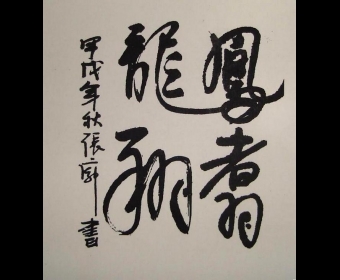 鳳翥
龍翔
甲戌年秋張書